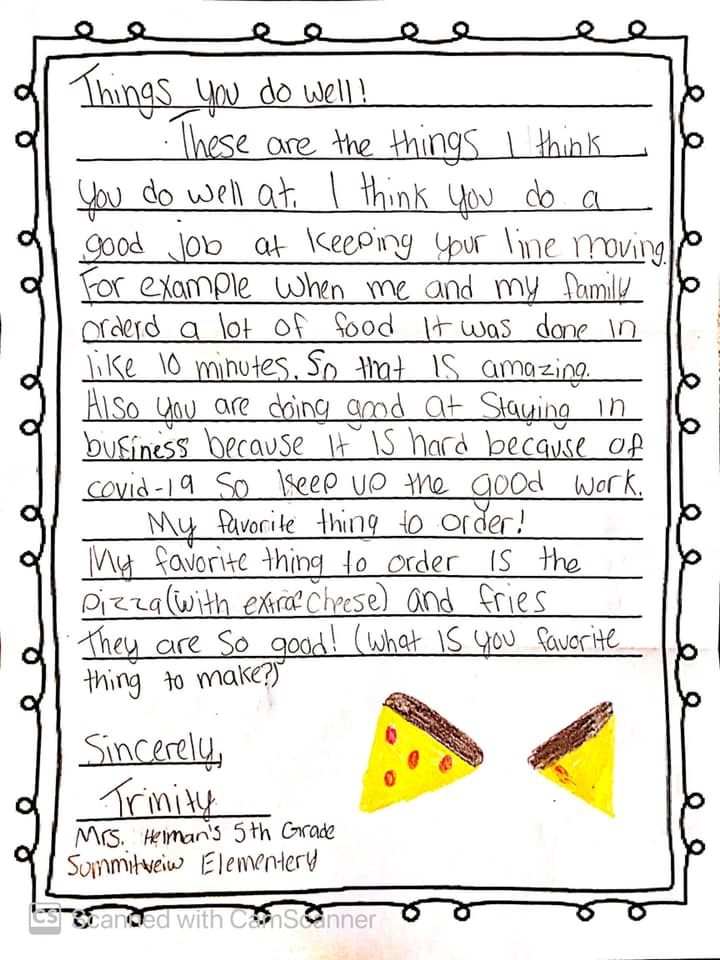 Things you do well!
These are the things I think
you do well at. I think you do a
good job at keeping your line moving.
For example when me and my family
orderd a lot of food It was done in
like 10 minutes. So that IS amazing.
Also you are doing good at Staying in
business because It IS hard because of
covid-19 So keep up the good work.
My favorite thing to order!
My favorite thing to order IS the
pizza(with extra cheese) and fries
They are So good! (what IS you favorite
thing to make?)
Sincerely,
Trinity
Mrs. Heiman's 5th Grade
Summitveiw Elementery
CS Scanned with CamScanner